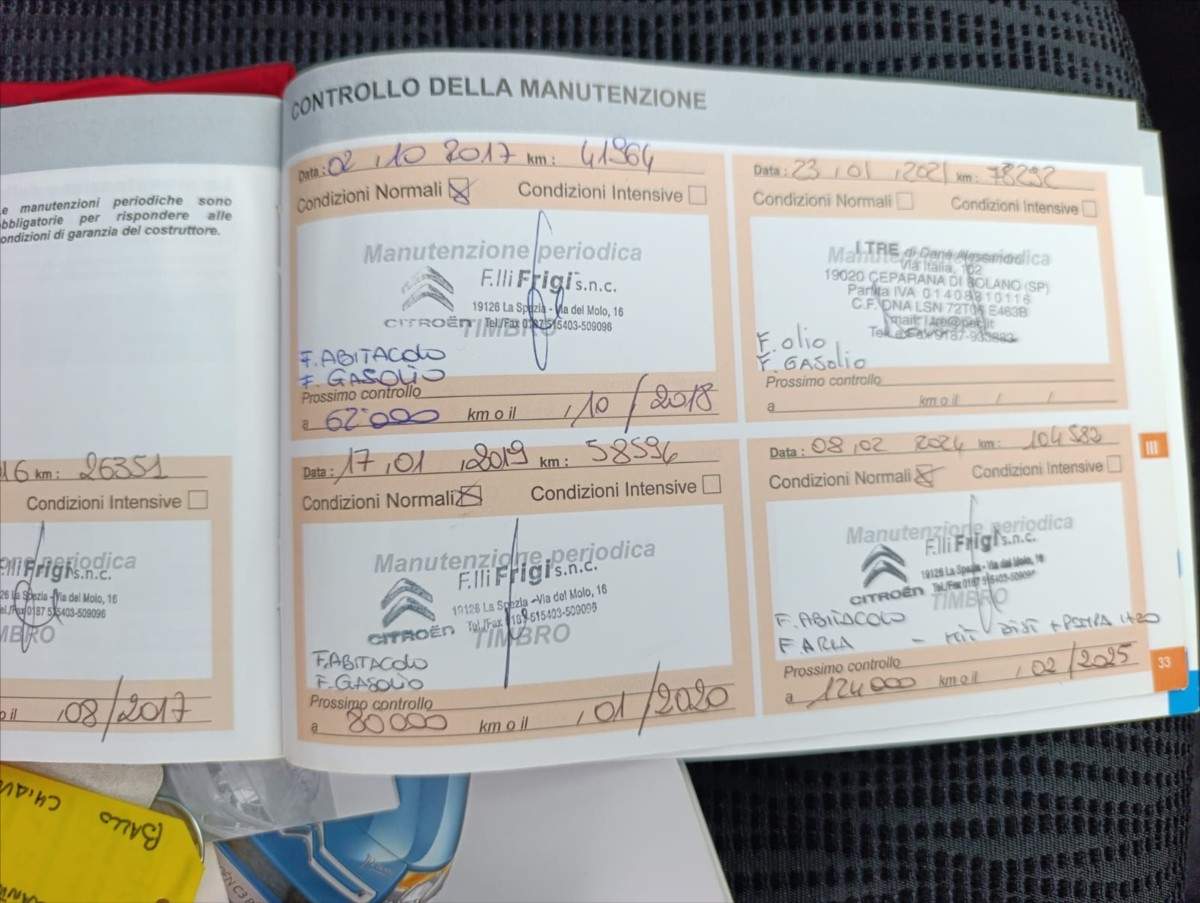 CONTROLLO DELLA MANUTENZIONE
e manutenzioni periodiche sono
bbligatorie per rispondere alle
ondizioni di garanzia del costruttore.
16 km: 26351
Condizioni Intensive
periodica
Frigi s.n.c.
Spezia - Via del Molo, 16
515403-509096
MBRO
o il ,08/2017
Data: 02,10 2017 km: 41964
Condizioni Normali Condizioni Intensive
Manutenzione periodica
F.lli Frigi s.n.c.
19126 La Spezia - Via del Molo, 16
CITROËN Tel./Fax 0187 515403-509096
TIMBRO
F. ABITACOLO
F. GASOLIO
Prossimo controllo
a 62000 km o il ,10/2018
Data: 17,01,2019 km: 58594
Condizioni Normali Condizioni Intensive
Manutenzione periodica
F.lli Frigi s.n.c.
19126 La Spezia - Via del Molo, 16
CITROËN Tel./Fax 0187 515403-509096
TIMBRO
F. ABITACOLO
F. GASOLIO
Prossimo controllo
a 80000 km o il ,01/2020
Data: 23,01,2021 km: 78292
Condizioni Normali Condizioni Intensive
Manutenzione periodica
I TRE di Danè
Via Italia, 102
19020 CEPARANA DI BOLANO (SP)
Partita IVA 01408810116
C.F. DNA LSN 72T05 E463B
F. olio
F. GASolio
Prossimo controllo
a km o il / /
Data: 08,02 2024 km: 104582
Condizioni Normali Condizioni Intensive
Manutenzione periodica
F.lli Frigi s.n.c.
19126 La Spezia - Via del Molo, 16
CITROËN Tel./Fax 0187 515403-509096
TIMBRO
F. ABITACOLO
F. ARIA - KIT DIST + POMPA H2O
Prossimo controllo
a 124000 km o il ,02/2025
III
33